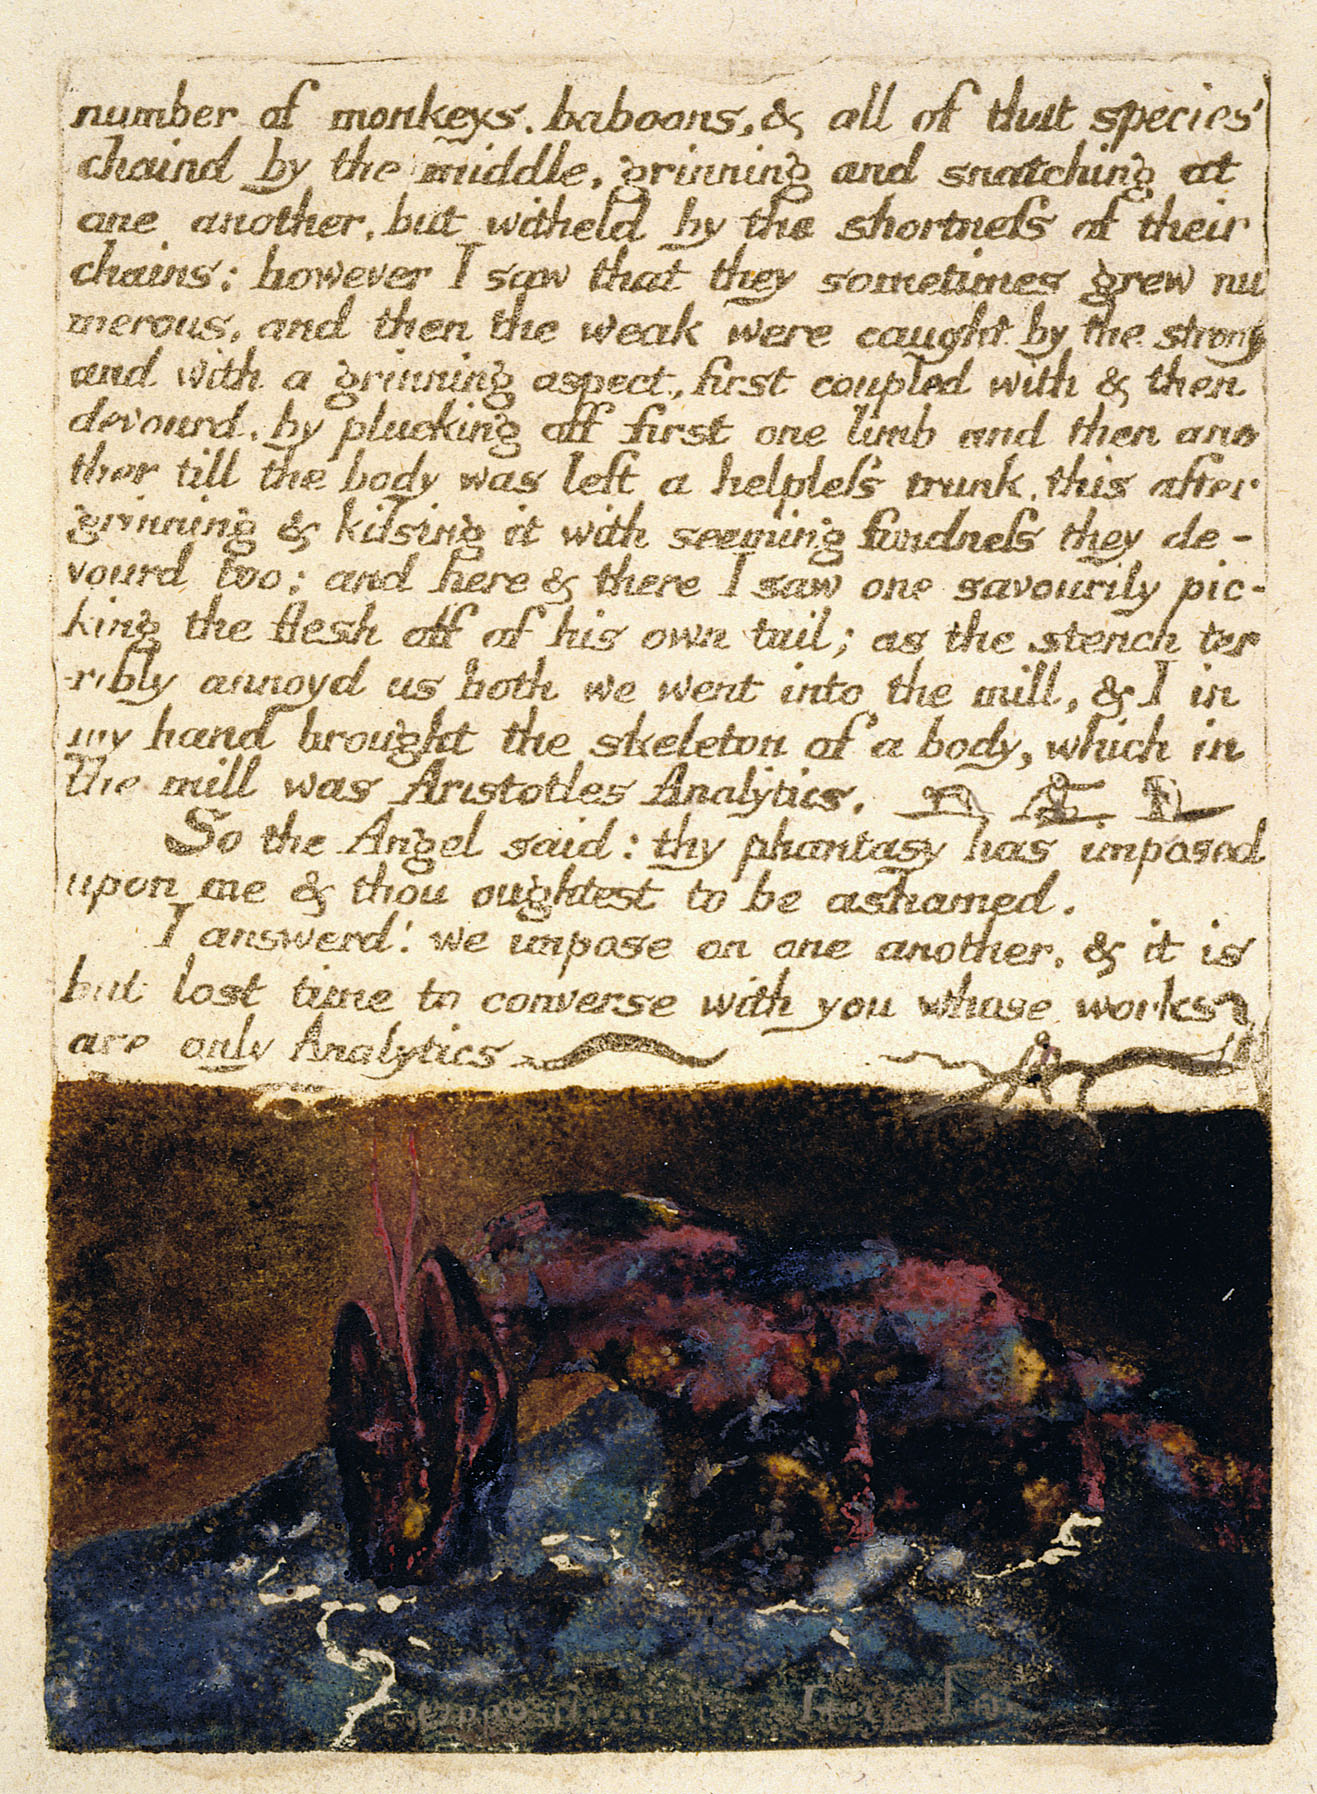 number of monkeys, baboons, & all of that species
chaind by the middle, grinning and snatching at
one another, but witheld by the shortness of their
chains: however I saw that they sometimes grew nu
merous, and then the weak were caught by the strong
and with a grinning aspect, first coupled with & then
devourd, by plucking off first one limb and then ano
ther till the body was left a helpless trunk. this after
grinning & kissing it with seeming fondness they de-
vourd too; and here & there I saw one savourily pic-
king the flesh off of his own tail; as the stench ter
ribly annoyd us both we went into the mill, & I in
my hand brought the skeleton of a body, which in
the mill was Aristotles Analytics.
So the Angel said: thy phantasy has imposed
upon me & thou oughtest to be ashamed.
I answerd: we impose on one another, & it is
but lost time to converse with you whose works
are only Analytics
Opposition is